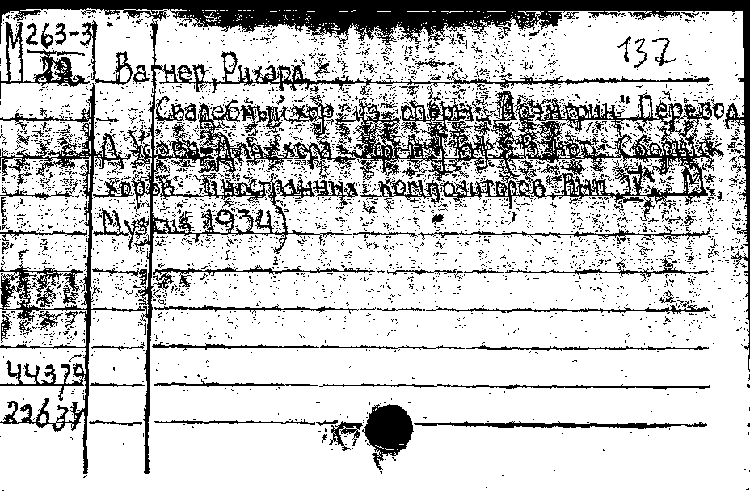 М263-3
22
137
Вагнер, Рихард.
Свадебный хор из оперы "Лоэнгрин" Перевод
Д. для хора В кн. Сборник
хоров иностранных композиторов Вып. М.,
Музгиз, 1934)
44379
22637